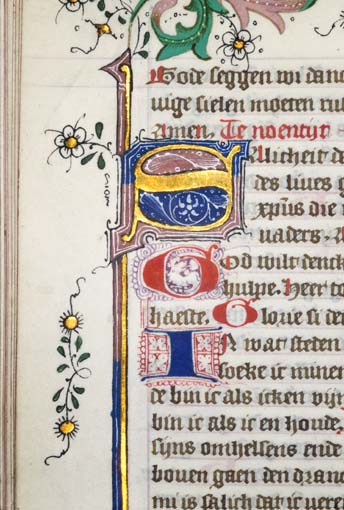 Gode seggen wi danc
uige sielen moeten ru
Amen. Te noentijt
Salicheit de
des liues g
xpus die
vaders. A
God wilt denck
hulpe. Heer to
haeste. Glorie si den
In wat steden
soeke ic minen
de bin ic als icken vijn
bin ic als ic en houde.
sijns omhelsens ende
bouen gaen den dranc
mi is salich dat ic verei